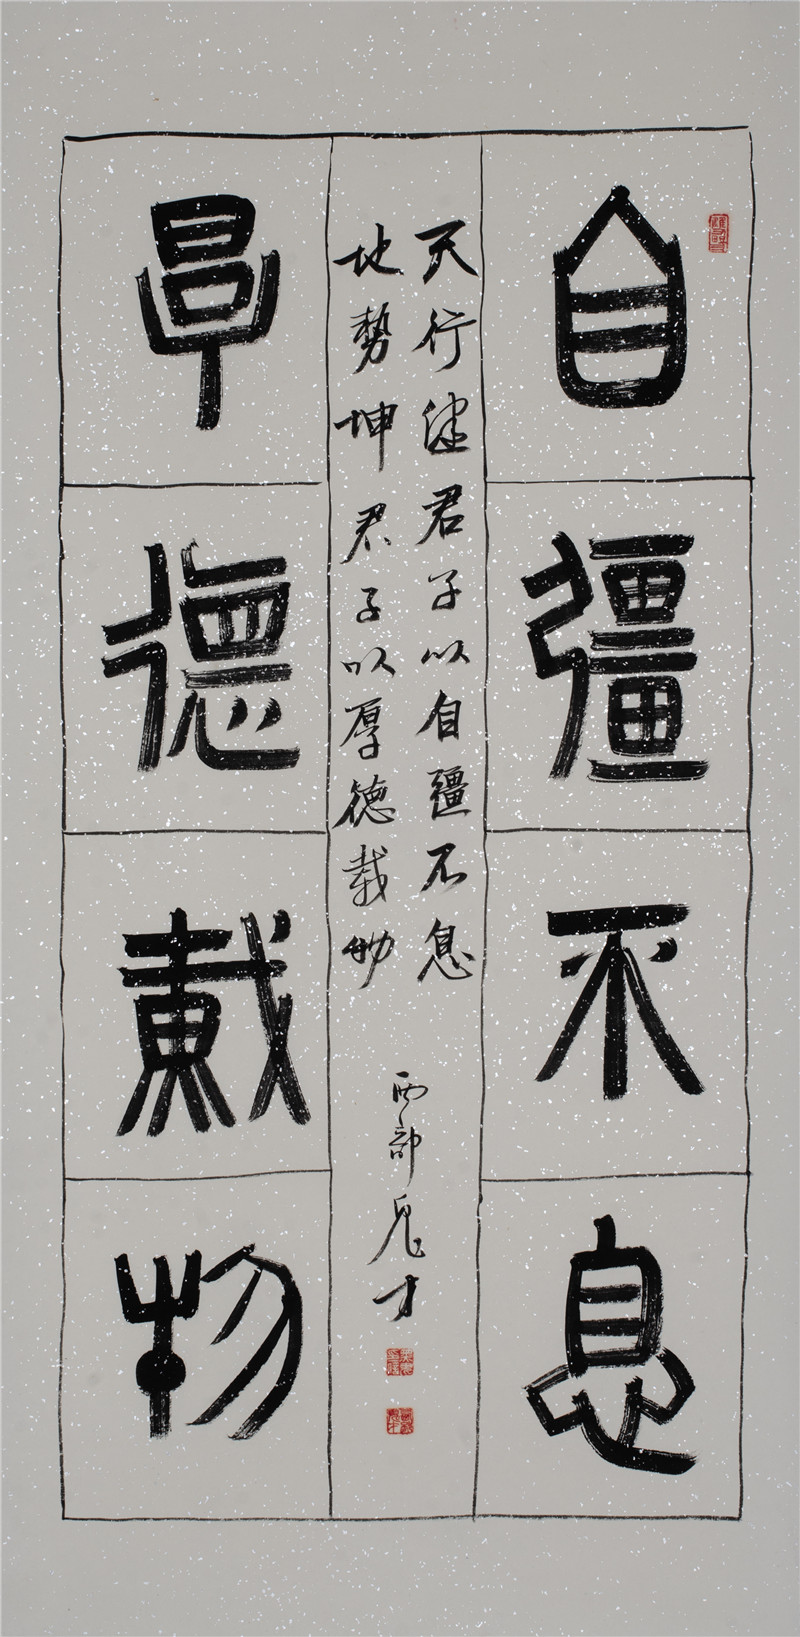 自彊不息
天行健君子以自彊不息
地勢坤君子以厚德載物
西部鬼才
厚德載物